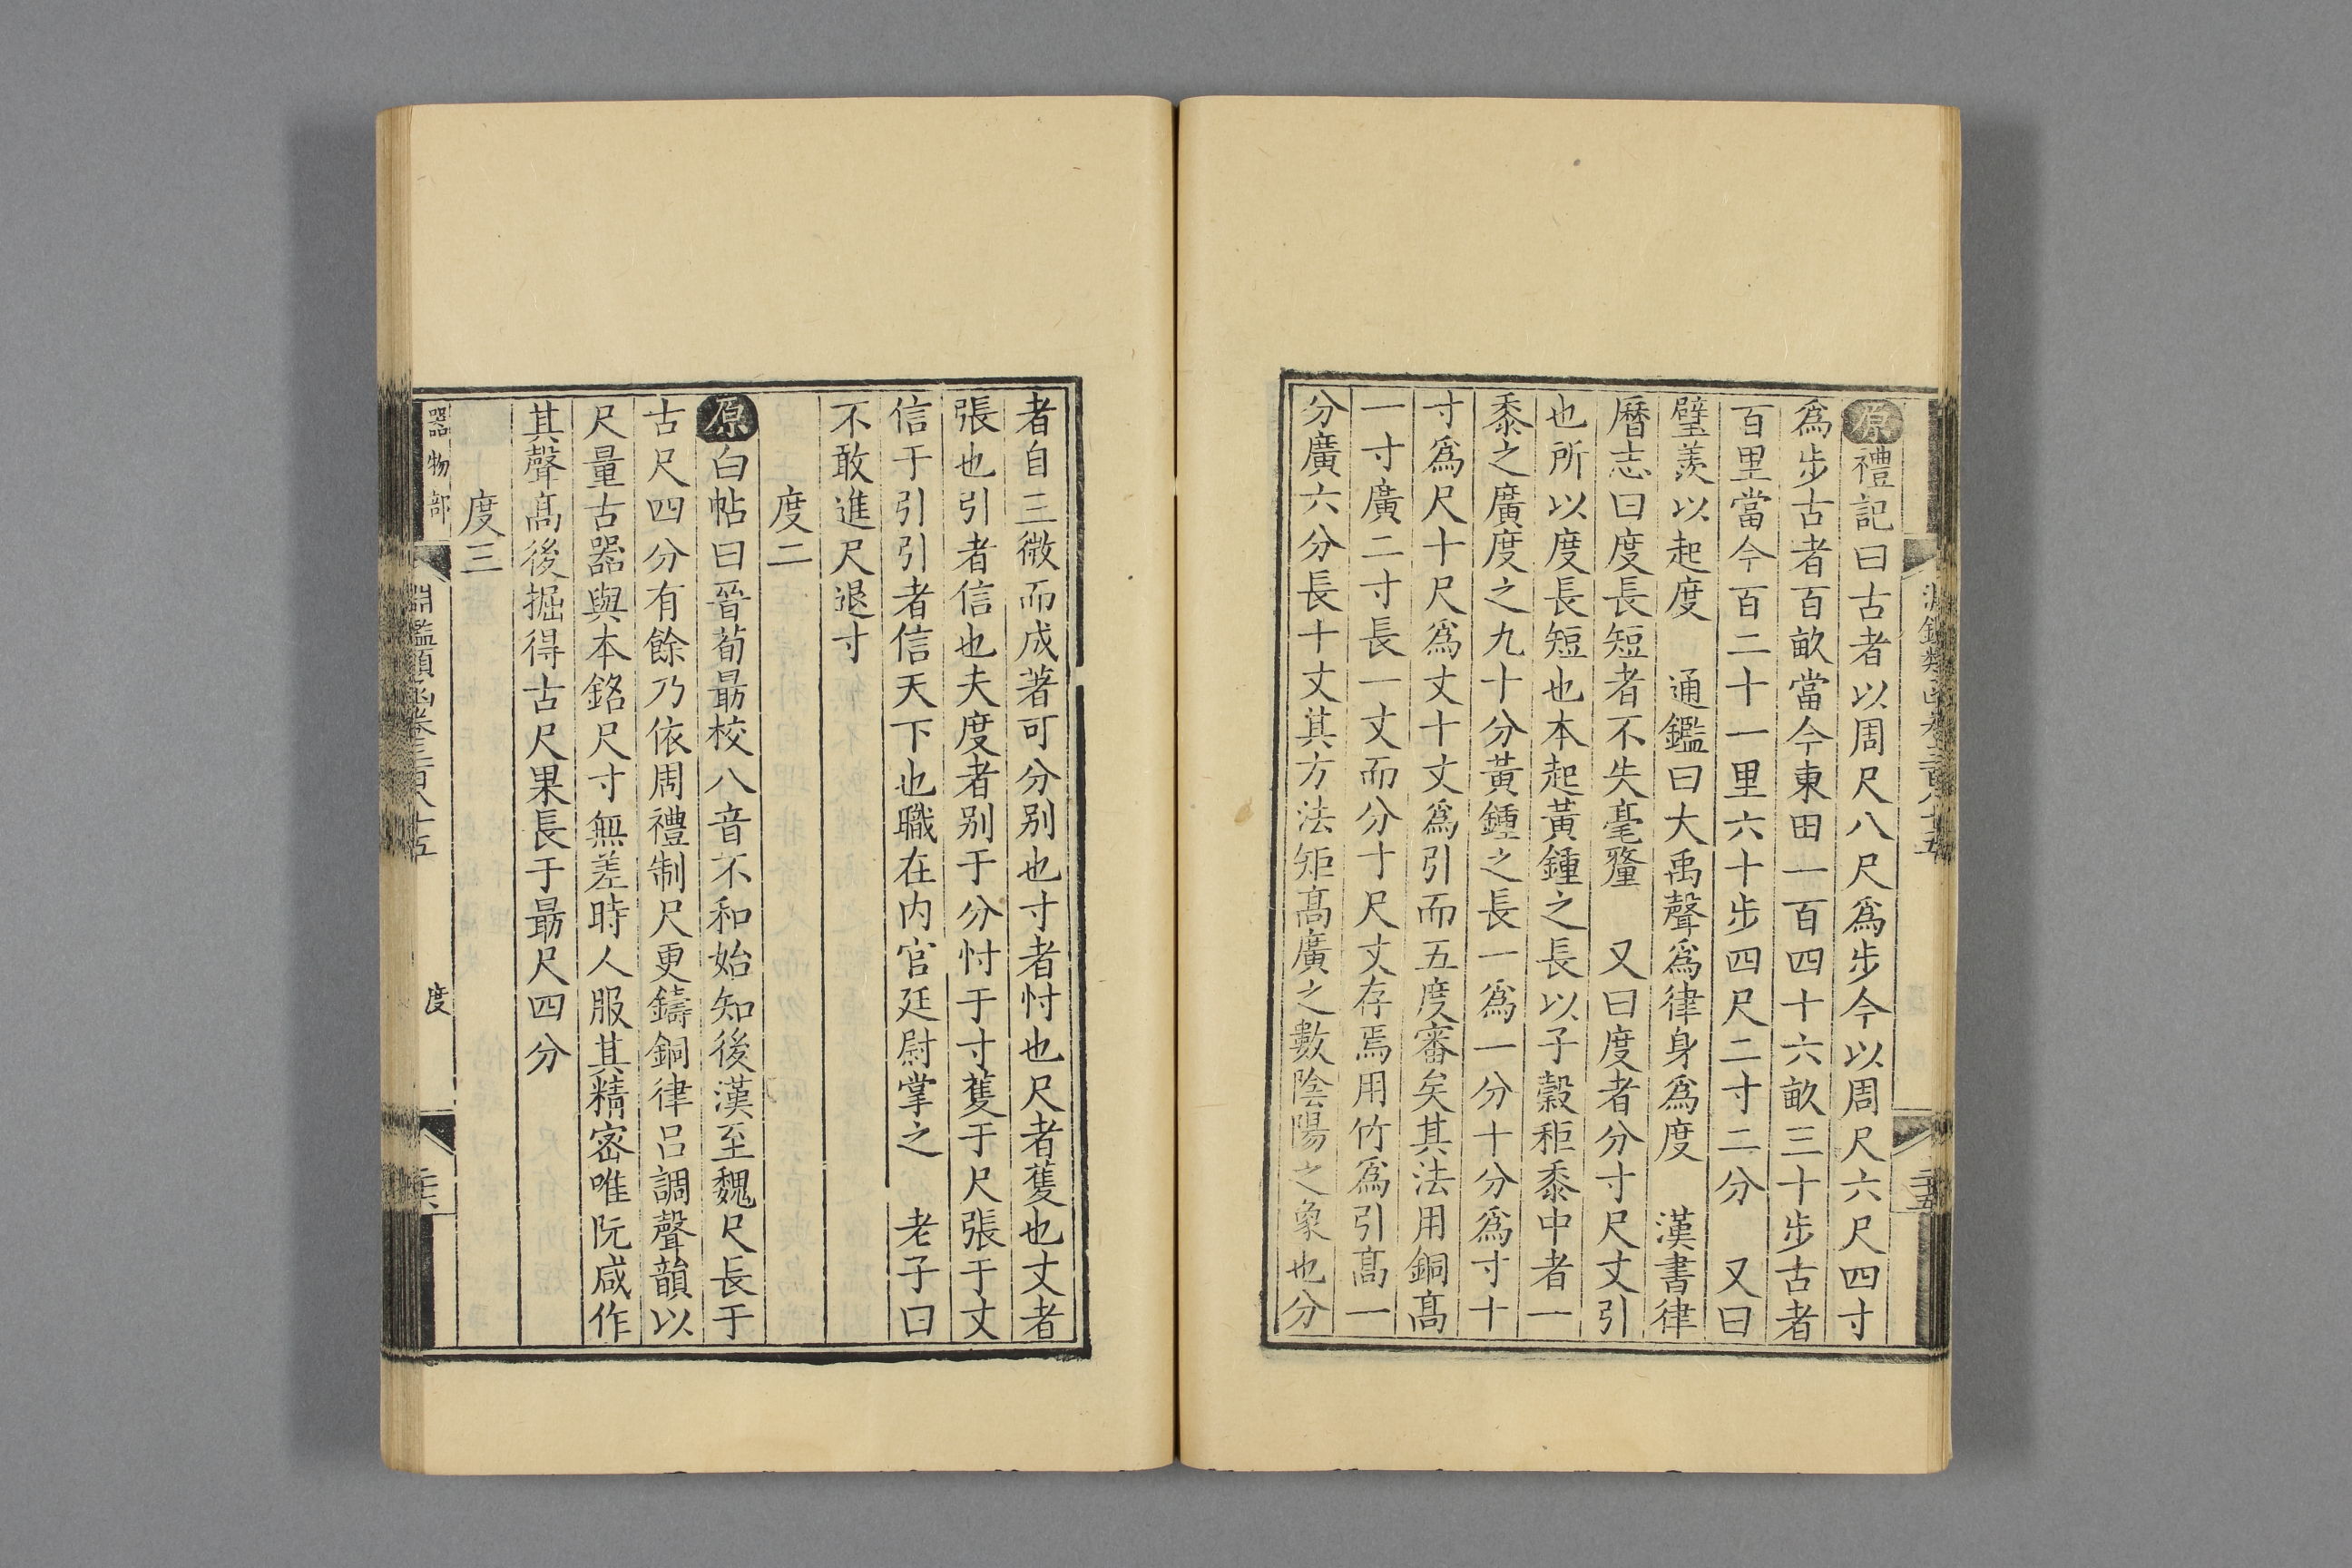 原禮記曰古者以周尺八尺爲步今以周尺六尺四寸
爲步古者百畝當今東田一百四十六畝三十步古者
百里當今百二十一里六十步四尺二寸二分　又曰
璧羨以起度　通鑑曰大禹聲爲律身爲度　漢書律
曆志曰度長短者不失毫釐　又曰度者分寸尺丈引
也所以度長短也本起黃鍾之長以子穀秬黍中者一
黍之廣度之九十分黃鍾之長一爲一分十分爲寸十
寸爲尺十尺爲丈十丈爲引而五度審矣其法用銅高
一寸廣二寸長一丈而分寸尺丈存焉用竹爲引高一
分廣六分長十丈其方法矩高廣之數陰陽之象也分
者自三微而成著可分别也寸者忖也尺者蒦也丈者
張也引者信也夫度者别于分忖于寸蒦于尺張于丈
信于引引者信天下也職在内官廷尉掌之　老子曰
不敢進尺退寸
度二
原白帖曰晉荀勗校八音不和始知後漢至魏尺長于
古尺四分有餘乃依周禮制尺更鑄銅律呂調聲韻以
尺量古器與本銘尺寸無差時人服其精密唯阮咸作
其聲高後掘得古尺果長于勗尺四分
度三
器物部
淵鑑類函卷三百八十五
度